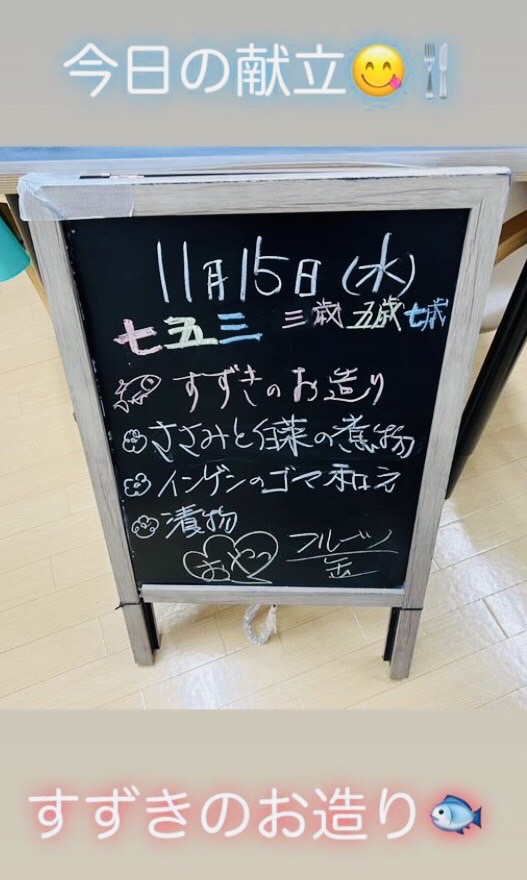 今日の献立😋🍴
11月15日(水)
七五三 三歳 五歳 七歳
すずきのお造り
ささみと白菜の煮物
インゲンのゴマ和え
漬物
おやつ フルーツ缶
すずきのお造り🐟